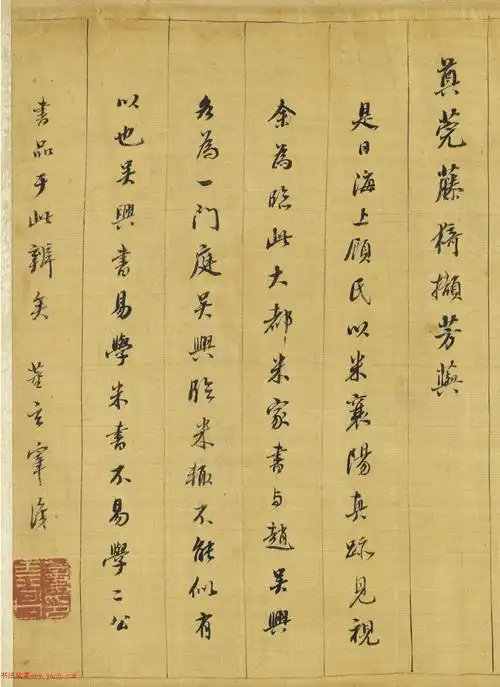 真菀藤椅擷芳蕪
是日海上顧氏以米襄陽真跡見視
余為臨此大都米家書与趙吳興
各為一門庭吳興臨米輙不能似有
以也吳興書易學米書不易學二公
書品于此辨矣 董玄宰識
书法欣赏www.yac8.com